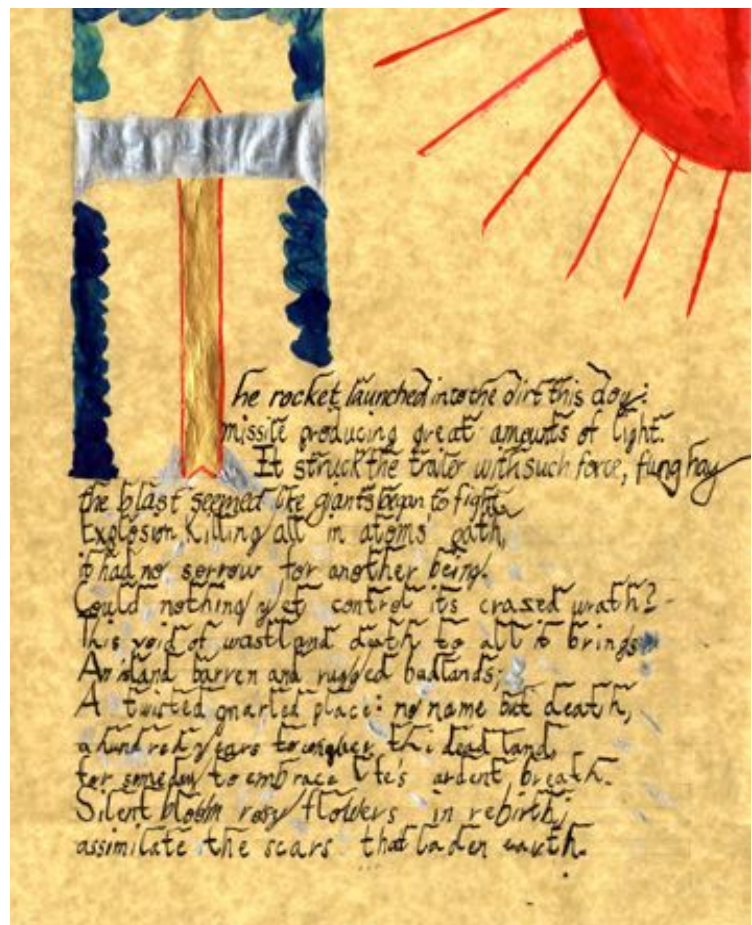 he rocket launched into the dirt this day:
missile producing great amounts of light.
It struck the trailer with such force, flung hay
the blast seemed like giants began to fight
Explosion Killing all in atoms' path,
it had no sorrow for another being.
Could nothing yet control its crazed wrath?
This void of wastland death to all it brings
An island barren and rugged badlands;
A twisted gnarled place: no name but death,
a hundred years to the dead land,
for someday to embrace life's ardent breath.
Silent bloom rosy flowers in rebirth;
assimilate the scars that laden earth.